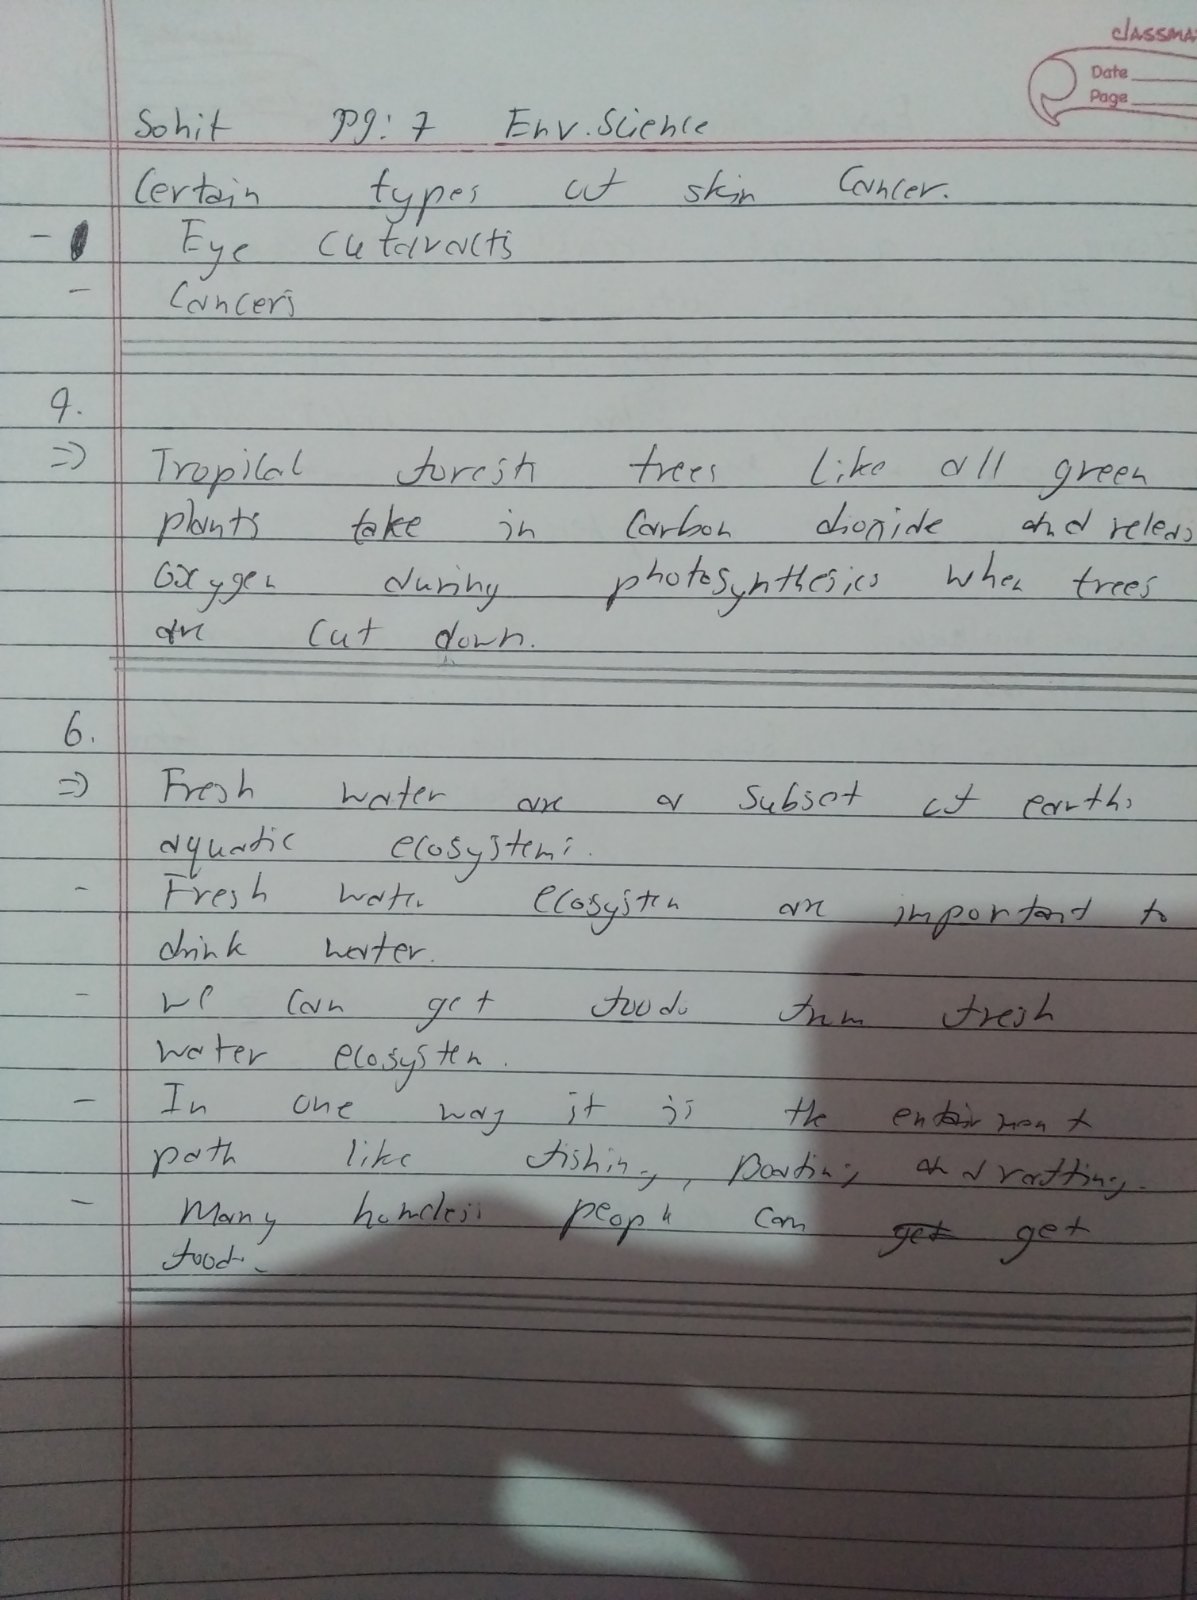 classma
Date
Page
Sohit pg: 7 Env. Science
Certain types of skin Cancer.
- Eye cutaracts
- Cancers
9.
=> Tropical forests trees like all green
plants take in Carbon dioxide and releas
Oxygen during photosynthesics when trees
are cut down.
6.
=> Fresh water are a subset of earths
aquatic ecosystems.
- Fresh water ecosystem are important to
drink water.
- we can get foods from fresh
water ecosystem.
- In one way it is the
path like fishing, boating and rafting.
- Many homeless people can get get
food.